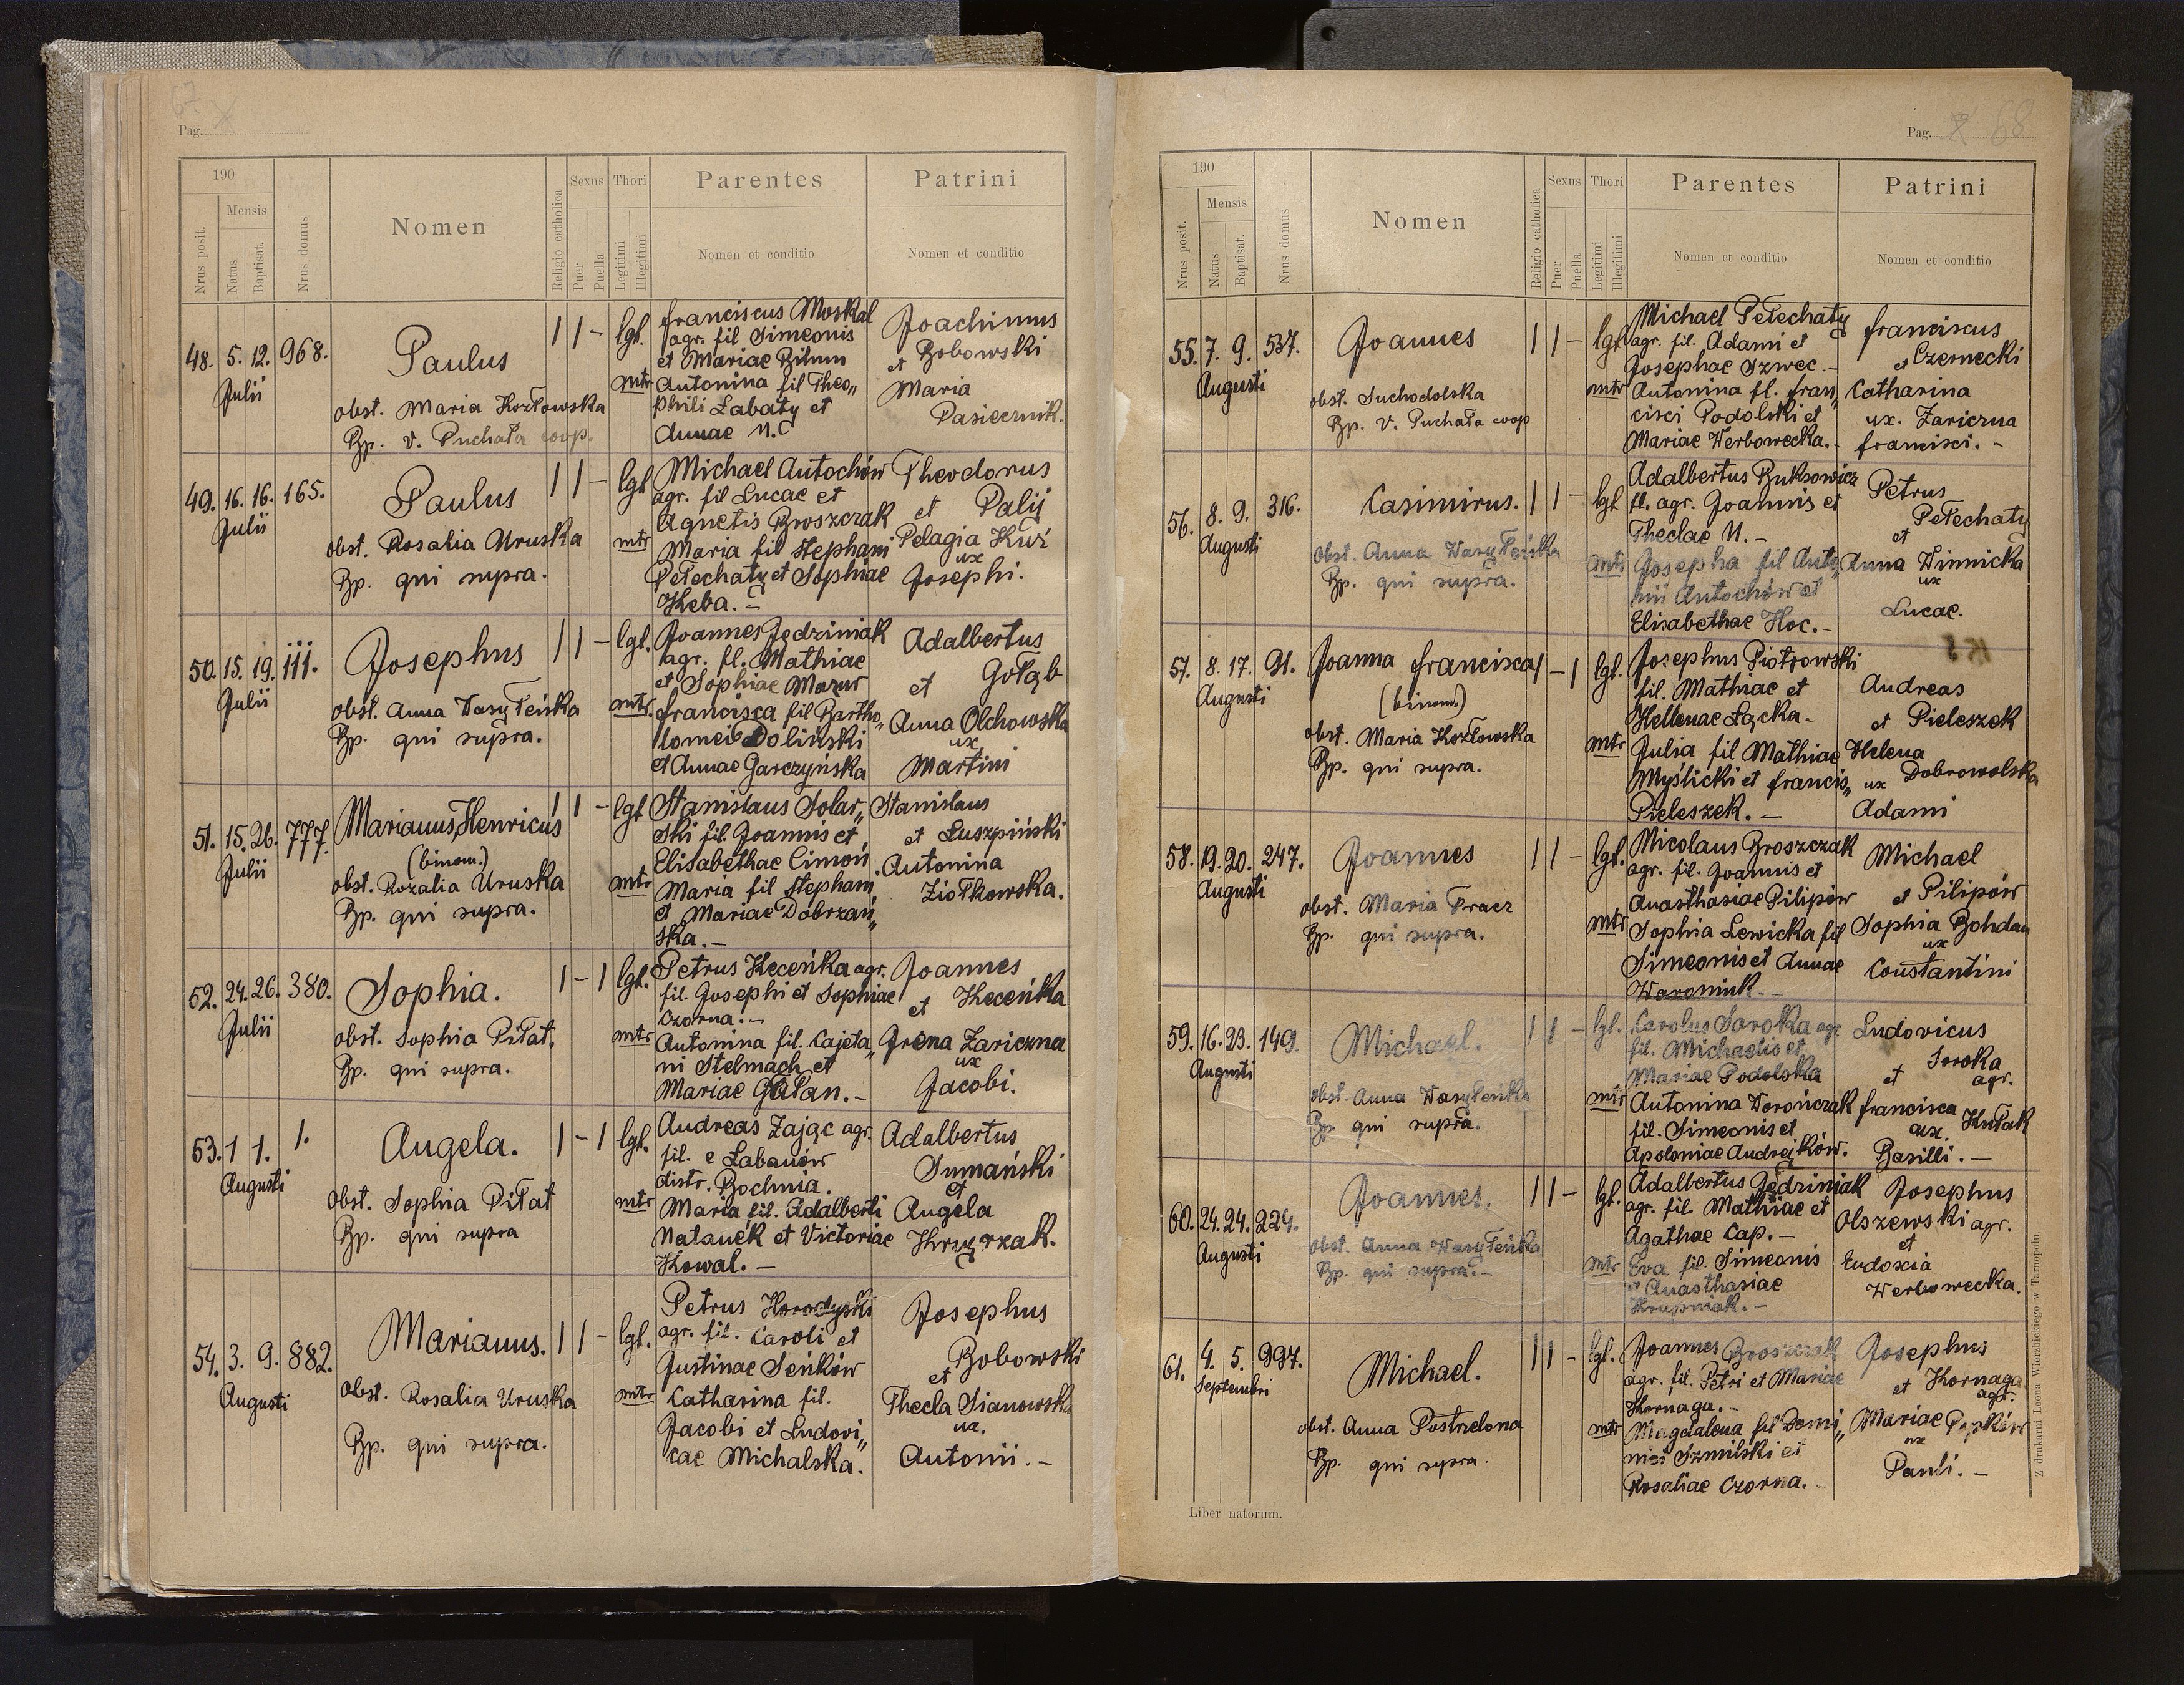 67
Pag.
190
Nrus posit.
Mensis
Natus
Baptisat.
Nrus domus
Nomen
Religio catholica
Sexus
Puer
Puella
Thori
Legitimi
Illegitimi
Parentes
Nomen et conditio
Patrini
Nomen et conditio
48. 5. 12. 968.
Julii
Paulus
obst. Maria Kozłowska
Bp. V. Puchała coop.
1 1 - lgt.
mtr
Franciscus Moskal
agr. fil. Simeonis
et Mariae Bilum
Antonina fil Theo„
phili Łabaty et
Annae N.
Joachimus
et Bobowski
Maria
Pasiecznik.
49. 16. 16. 165.
Julii
Paulus
obst. Rosalia Uruska
Bp. qui supra.
1 1 - lgt
mtr
Michael Antochów
agr. fil Lucae et
Agnetis Broszczak
Maria fil Stephani
Pełechaty et Sophiae
Keba. -
Theodorus
et Palij
Pelagia Kuź
ux
Josephi.
50. 15. 19. 111.
Julii
Josephus
obst. Anna Wasyłeńka
Bp. qui supra.
1 1 - lgt.
mtr.
Joannes Jędziniak
agr. fl. Mathiae
et Sophiae Mazur
Francisca fil Bartho„
lomei Doliński
et Annae Garczyńska
Adalbertus
et Gołąb
Anna Olchowska
ux
Martini
51. 15. 26. 777.
Julii
Marianus, Henricus
(binom.)
obst. Rozalia Uruska
Bp. qui supra.
1 1 - lgt
mtr
Stanislaus Solar„
ski fil. Joannis et
Elisabethae Cimoń
Maria fil Stephani
et Mariae Dobrzań„
ska. -
Stanislaus
et Łuszpiński
Antonina
Ziółkowska.
52. 24. 26. 380.
Julii
Sophia.
obst. Sophia Piłat.
Bp. qui supra.
1 - 1 lgt.
mtr
Petrus Keceńka agr.
fil. Josephi et Sophiae
Czorna. -
Antonina fil. Cajeta„
ni Stelmach et
Mariae Gałan. -
Joannes
et Keceńka
Irena Zariczna
ux
Jacobi.
53. 1 1. 1.
Augusti
Angela.
obst. Sophia Piłat
Bp. qui supra
1 - 1 lgt.
mtr
Andreas Zając agr.
fil. e Łabanów
distr. Bochnia.
Maria fil. Adalberti
Natanek et Victoriae
Kowal. -
Adalbertus
Sumański
et
Angela
54. 3. 9. 882.
Augusti
Marianus.
obst. Rosalia Uruska
Bp. qui supra.
1 1 - lgt.
mtr
Petrus Horodyski
agr. fil. Caroli et
Justinae Seńków
Catharina fil.
Jacobi et Ludovi„
cae Michalska.
Josephus
Bobowski
et
Thecla Sianowska
ux.
Antonii. -
Pag. 68
190
Nrus posit.
Mensis
Natus
Baptisat.
Nrus domus
Nomen
Religio catholica
Sexus
Puer
Puella
Thori
Legitimi
Illegitimi
Parentes
Nomen et conditio
Patrini
Nomen et conditio
55. 7. 9. 537.
Augusti
Joannes
obst. Suchodolska
Bp. V. Puchała coop
1 1 - lgt
mtr
Michael Pełechaty
agr. fil. Adami et
Josephae Szwec. -
Antonina fl. Fran„
cisci Podolski et
Mariae Werbowecka. -
Franciscus
et Czernecki
Catharina
ux. Zariczna
Francisci. -
56. 8. 9. 316.
Augusti
Casimirus.
obst. Anna Wasyłeńka
Bp. qui supra.
1 1 - lgt
mtr.
Adalbertus Buksowicz
fl. agr. Joannis et
Theclae N. -
Josepha fil Anto„
nii Antochów et
Elisabethae Hoc. -
Petrus
Pełechaty
et
Anna Winnicka
ux
Lucae.
57. 8. 17. 91.
Augusti
Joanna Francisca
(binom.)
obst. Maria Kozłowska
Bp. qui supra.
1 - 1 lgt.
mtr
Josephus Piotrowski
fil. Mathiae et
Hellenae Łącka. -
Julia fil Mathiae
Myślicki et Francis„
Pieleszek. -
Andreas
et Pieleszek
Helena
ux Dobrowolska
Adami
58. 19. 20. 247.
Augusti
Joannes
obst. Maria Tracz
Bp. qui supra.
1 1 - lgt.
mtr
Nicolaus Broszczak
agr. fil. Joannis et
Anasthasiae Pilipów
Sophia Lewicka fil
Simeonis et Annae
Woroniuk. -
Michael
et Pilipów
Sophia Bohdan
ux
Constantini
59. 16. 23. 149.
Augusti
Michael.
obst. Anna Wasyłeńka
Bp. qui supra.
1 1 - lgt.
mtr
Carolus Soroka agr.
fil. Michaelis et
Mariae Podolska
AntoninaWorończak
fil. Simeonis et
Apoloniae Andrejków.
Ludovicus
Soroka
et agr.
Francisca
ux. Kułak
Basilli. -
60. 24. 24. 224.
Augusti
Joannes.
obst. Anna Wasyłeńka
Bp. qui supra. -
1 1 - lgt.
mtr
Adalbertus Jędziniak
agr. fil. Mathiae et
Agathae Cap. -
Eva fil. Simeonis
et Anasthasiae
Krupniak. -
Josephus
Olszewski agr.
et
Eudoxia
Werbowecka.
61. 4. 5. 997.
Septembri
Michael.
obst. Anna Postrelona
Bp. qui supra.
1 1 - lgt.
mtr
Joannes Broszczak
agr. fil. Petri et Mariae
Kornaga. -
Magdalena fil Domi„
nici Szmilski et
Rosaliae Czorna. -
Josephus
et Kornaga
agr.
Mariae
ux
Pauli. -
Liber natorum.
Z drukarni Leona Wierzbickiego w Tarnopolu.